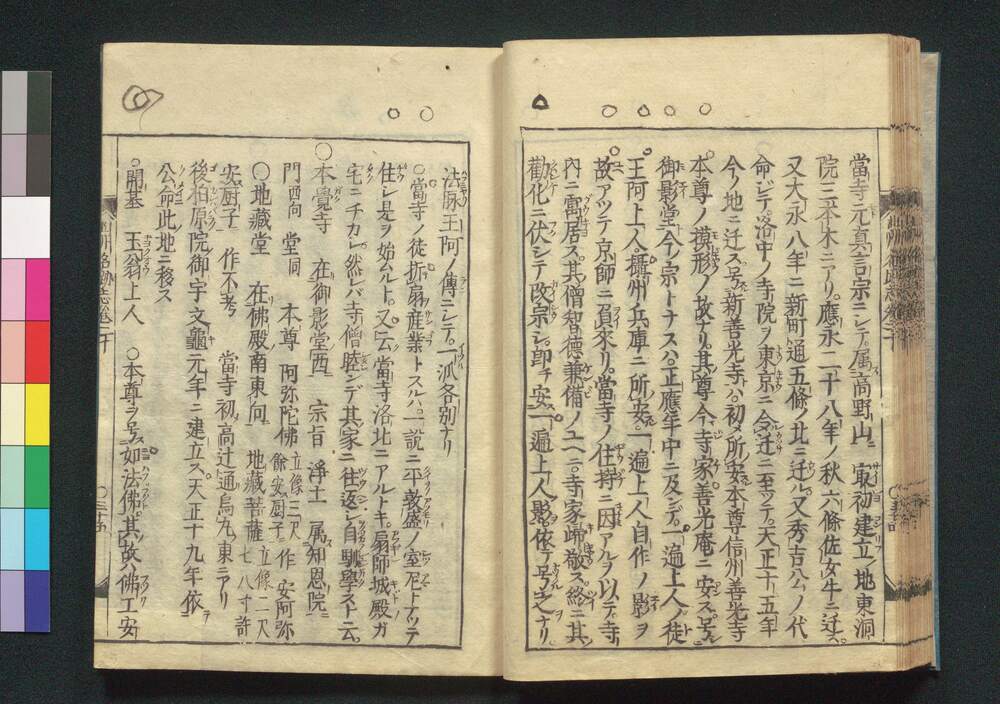 當寺元真言宗ニシテ属高野山ニ 最初建立ノ地東洞
院三本木ニアリ應永二十八年ノ秋六條佐女牛ニ迁ス
又大永八年ニ新町通五條ノ北ニ迁ル又秀吉公ノ代
命ジテ洛中ノ寺院ヲ東京ニ令迁ニ至ッテ天正十五年
今ノ地ニ迁ス号新善光寺ハ初メ所安本尊信州善光寺
本尊ノ模形ノ故ナリ其尊今寺家善光庵ニ安ス号
御影堂今ノ宗トナスハ正應年中ニ及ンデ一遍上人ノ徒
王阿上人攝州兵庫ニ所安一遍上人自作ノ影ヲ
故アッテ京師ニ負來リ當寺ノ住持ニ因アルヲ以テ寺
内ニ寓居ス其僧智徳兼備ノユヘニ寺家歸敬ス終ニ其
勸化ニ伏シテ改宗シ即チ安一遍上人影依テ号之ナリ
法脉王阿ノ傳ニシテ一派各別ナリ
○當寺ノ徒折扇産業トスルハ一說ニ平敦盛ノ室尼トナッテ
住シ是ヲ始ムルト又云當寺洛北ニアルトキ扇師城殿ガ
宅ニチカシ然レバ寺僧睦ンデ其家ニ往返シ自馴學ストニ云
○本覺寺 在御影堂西 宗旨 淨土 属知恩院ニ
門西向 堂同 本尊 阿弥陀佛 立像三尺餘安厨子 作 安阿弥
○地藏堂 在佛殿南東向 地藏菩薩 立像二尺七八寸許
安厨子 作不考 當寺初高辻通烏丸東ニアリ
後柏原院御宇文龜元年ニ建立ス天正十九年依
公命此地ニ移ス
○開基 玉翁上人 ○本尊ヲ号ス如法佛其故ハ佛工安